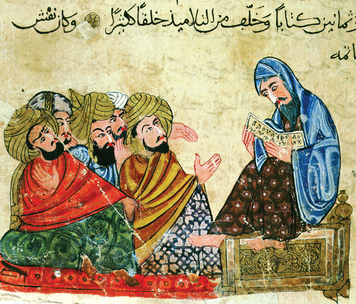 ثمانين كتاباً وخلّف من التلاميذ خلقاً كثيراً وكان نقش